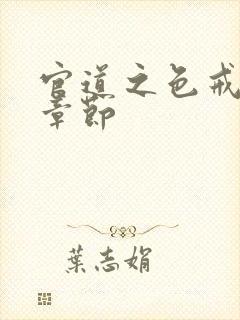 官道之色戒
章節
葉志娟